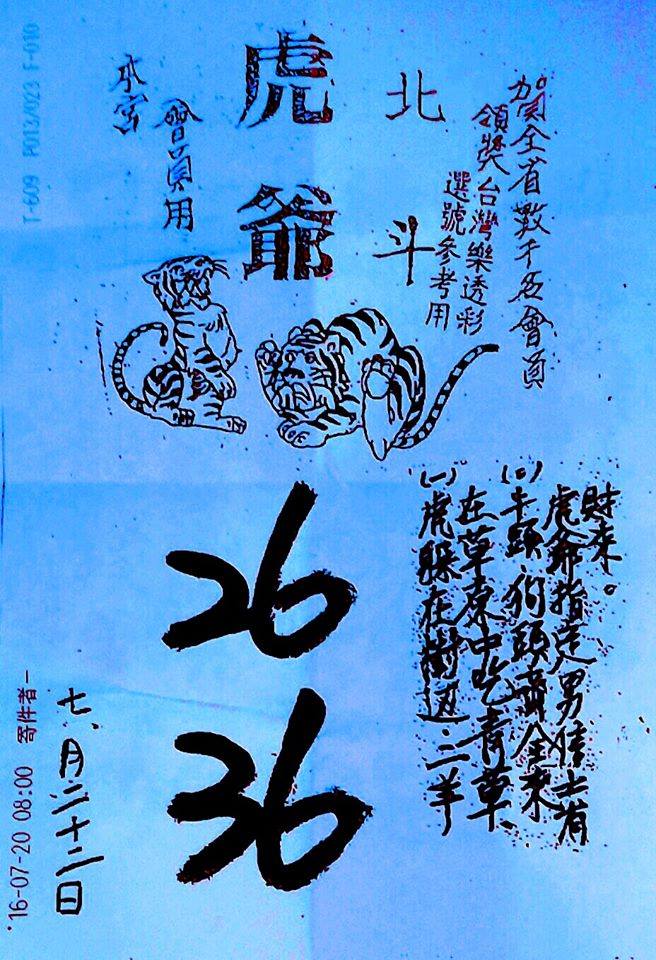 賀全省數千名會員
領獎台灣樂透彩
選號參考用
北斗
虎爺
會員用
本宮
T-609 P013/023 F-010
(一)虎躲在樹边、二羊
在草原中吃青草
(二)牛頭、狗頭齊全來
虎爺指定男信士有
財來。
26
36
七、月二十二日
'16-07-20 08:00 寄件者-